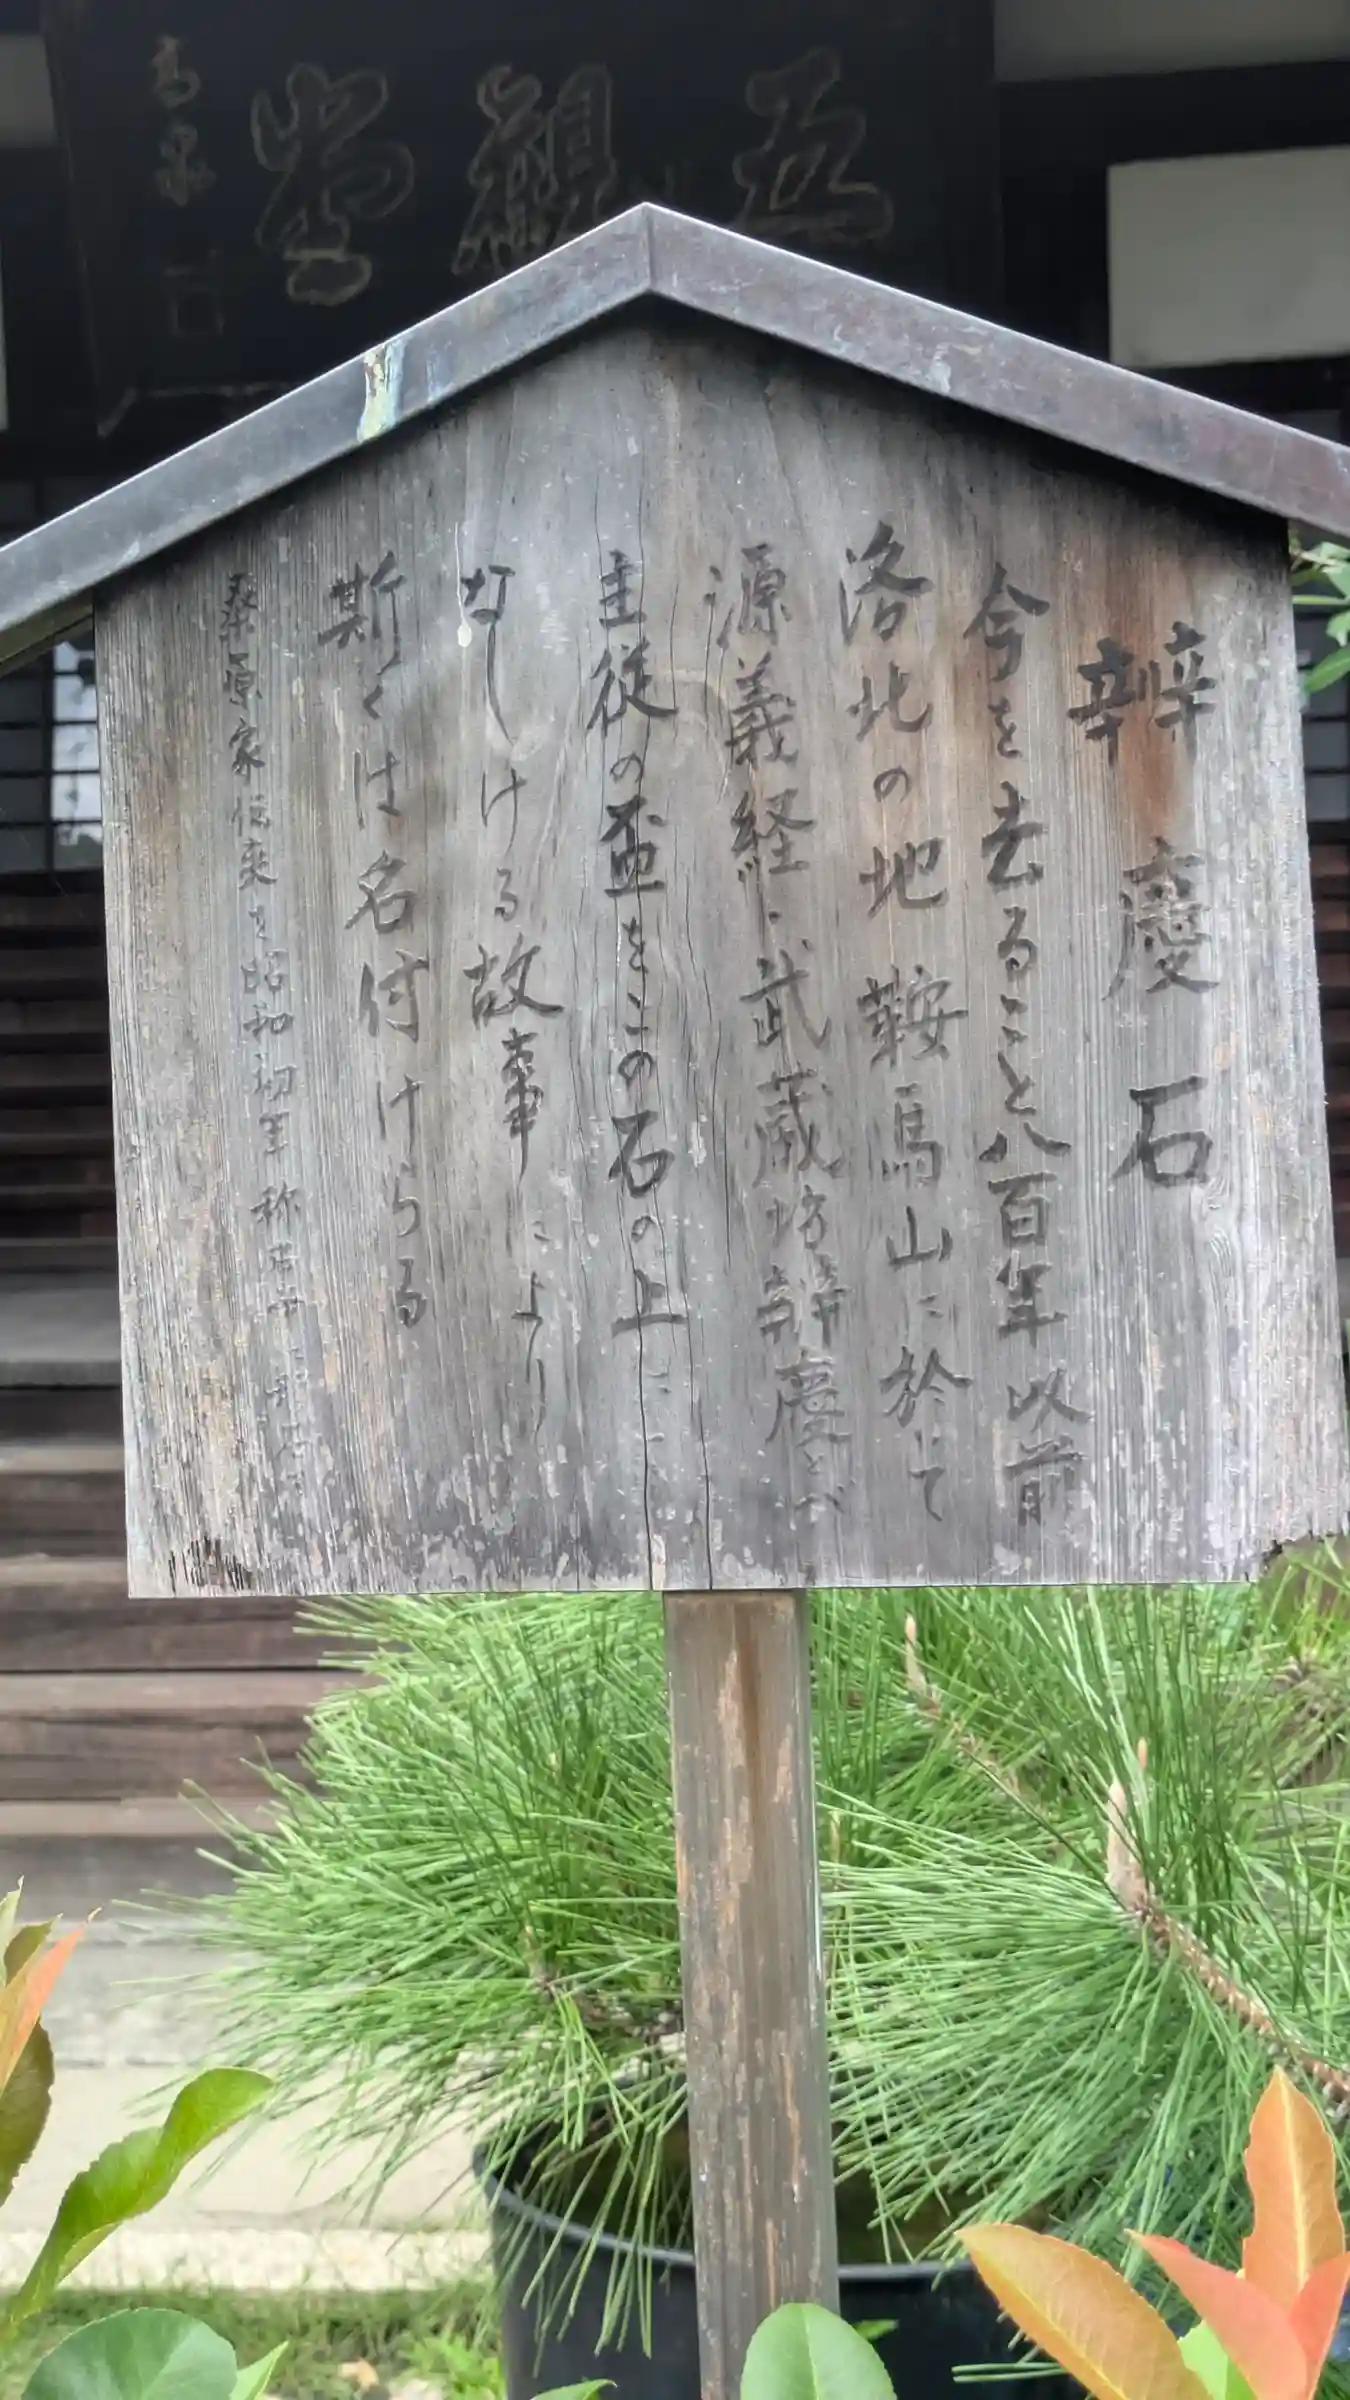 五観堂
高泉
辨慶石
今を去ること八百年以前
洛北の地鞍馬山に於て
源義経、武蔵坊辨慶とが
主従の盃をこの石の上に
なしける故事により
斯くは名付けらる
桑原家伝来を昭和初年